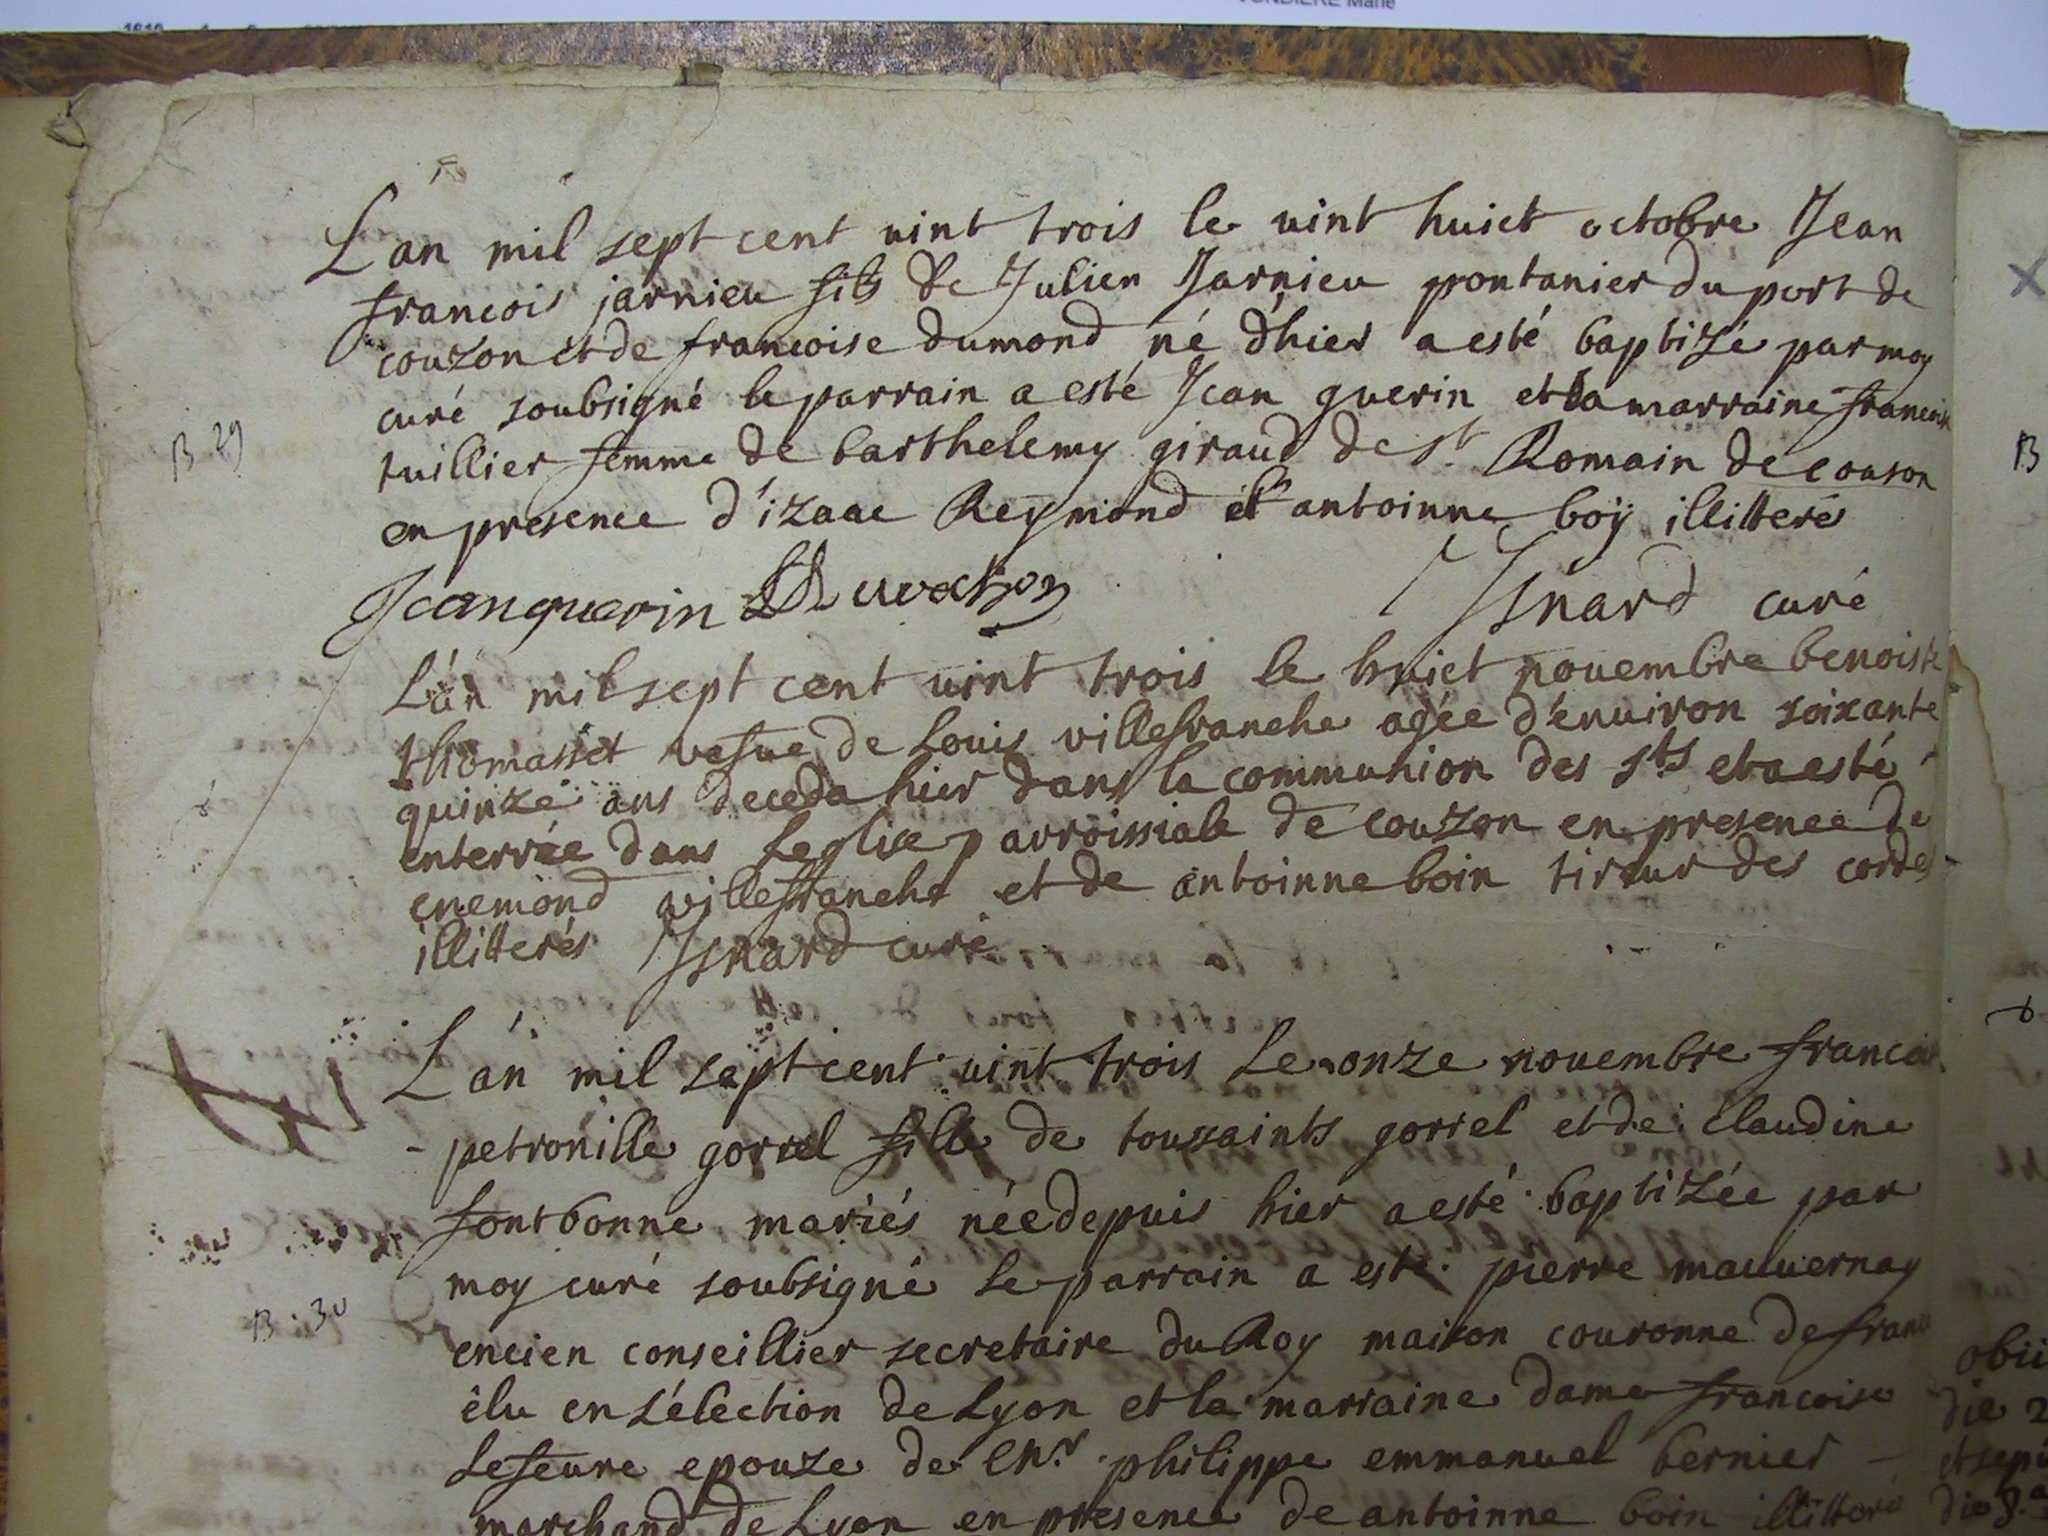 L'an mil sept cent vint trois le vint huict octobre Jean
francois jarnieu fils de Julien Jarnieu pontanier du port de
couzon et de francoise dumond né d'hier a esté baptizé par moy
curé soubsigné le parrain a esté Jean guerin et la marraine francoise
tuillier femme de barthelemy giraud de st Romain de couson
en presence d'izaac Reymond et antoinne boÿ illitteré
B 29
Jean guerin
Isnard curé
L'an mil sept cent vint trois le huict novembre benoiste
thomasset vefve de Louis villefranche agée d'environ soixante
quinze ans deceda hier dans la communion des sts et a esté
enterrée dans Leglise parroissiale de couzon en presence de
enemond villefranche et de antoinne boin tireur des cordes
illitterés Isnard curé
L'an mil sept cent vint trois Le onze novembre francoise
petronille gorrel fille de toussaints gorrel et de Claudine
fontbonne mariés née depuis hier a esté baptizée par
moy curé soubsigné Le parrain a esté pierre mauvernay
B. 30
encien conseillier secretaire du Roy maison couronne de france
élu en L'élection de Lyon et la marraine dame francoise
Lefevre epouze de philippe emmanuel bernier
marchand de Lyon en presence de antoinne boin illitteré
B
obii
die 2
et sepu